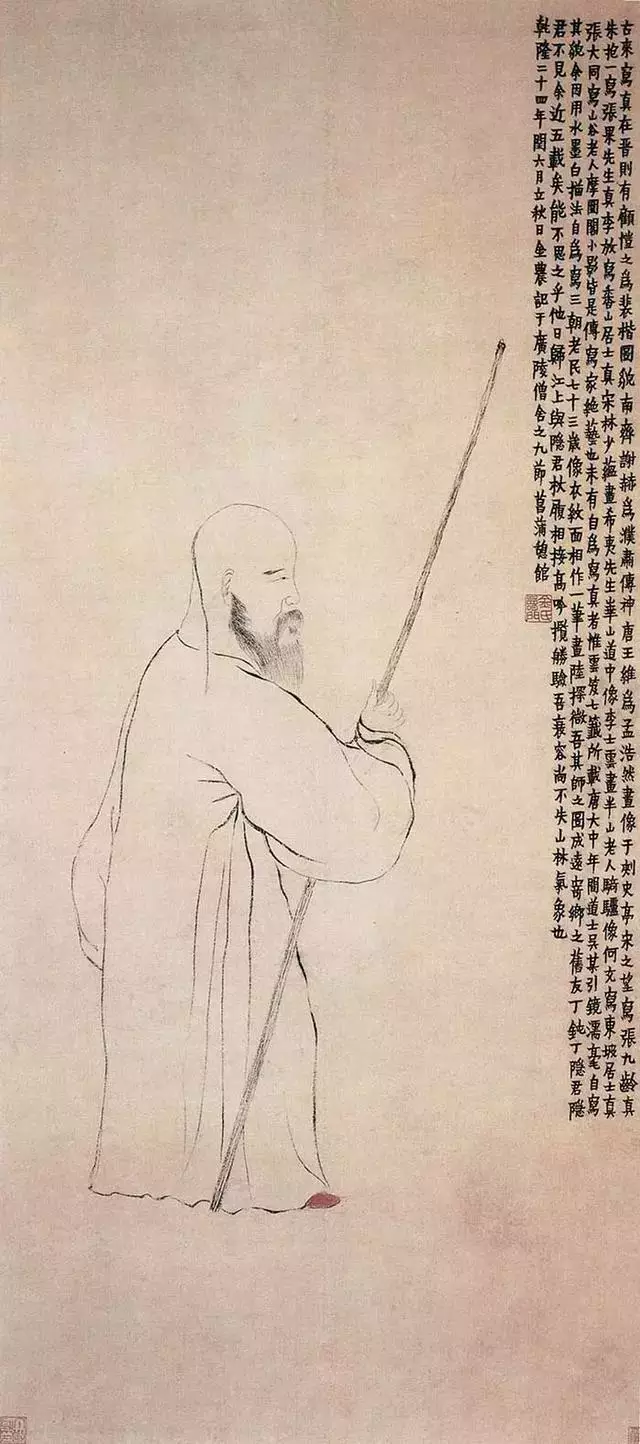 古來寫真在晉則有顧愷之爲裴楷圖貌南齊謝赫爲濮肅傳神唐王維爲孟浩然畫像于刺史亭宋之望寫張九齡真
朱抱一寫張果先生真李放寫香山居士真宋林少蘊畫希夷先生華山道中像李士雲畫半山老人騎驢像何充寫東坡居士真
張大同寫山谷老人摩圍閣小影皆是傳寫家絕藝也未有自爲寫真者惟雲笈七籤所載唐大中年間道士吳某引鏡濡毫自寫
其貌余因用水墨白描法自爲寫三朝老民七十三歲像衣紋面相作一筆畫陸探微吾其師之圖成遠寄鄉之舊友丁鈍丁隱君隱
君不見余近五載矣能不思之乎他日歸江上與隱君杖履相接高吟攬勝驗吾衰容尚不失山林氣象也
乾隆二十四年閏六月立秋日金農記于廣陵僧舍之九節菖蒲憩館